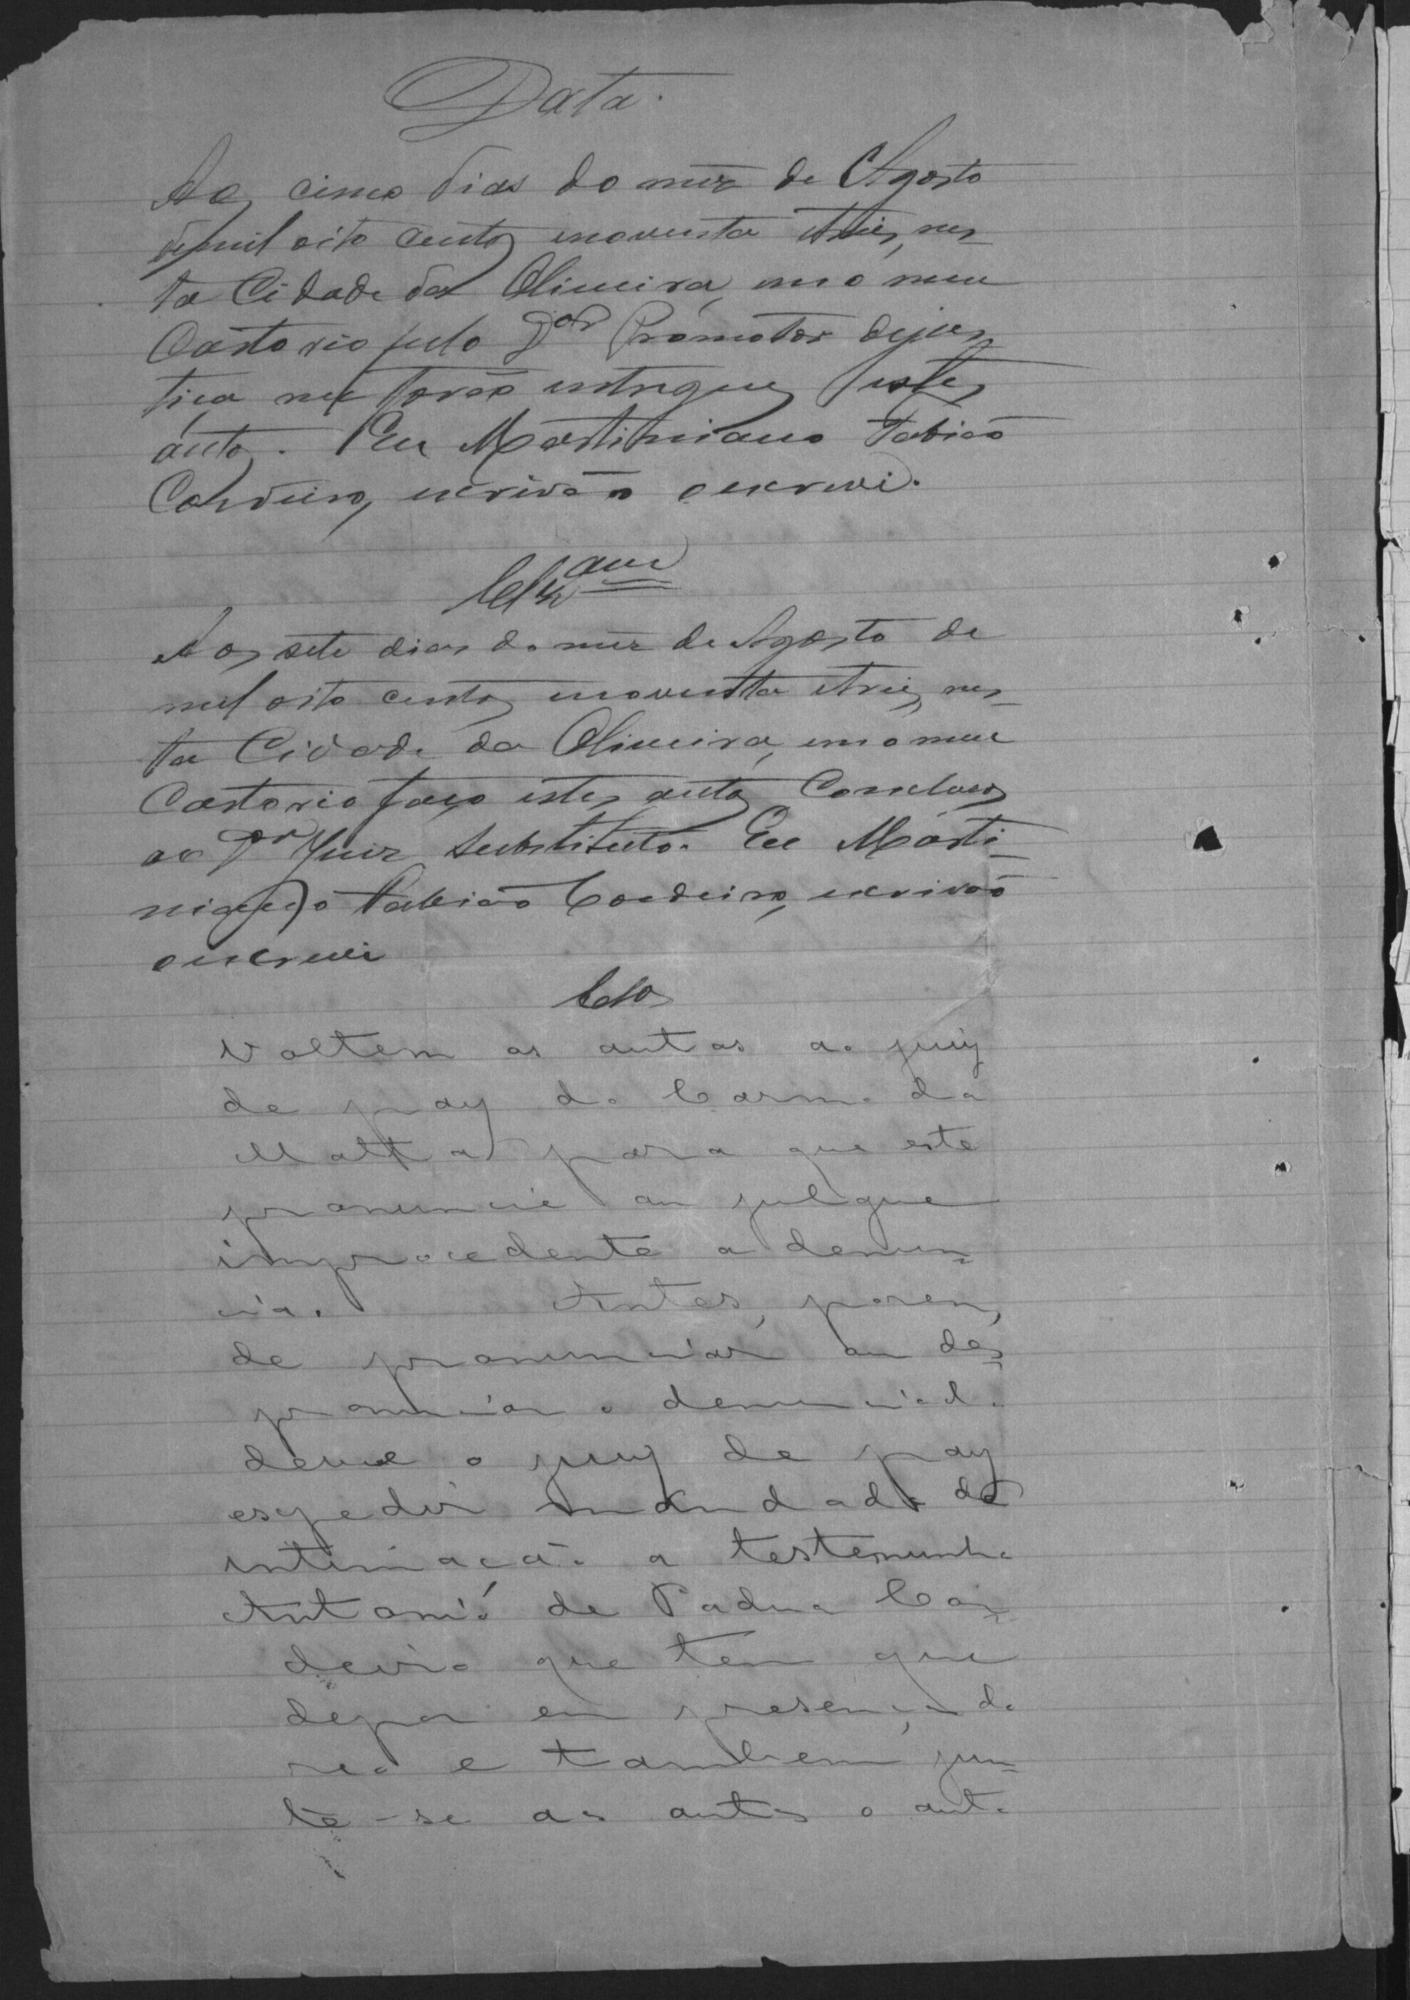 Data.
Aos cinco dias do mez de Agosto
de mil oito centos enoventa etres, nes-
ta Cidade da Oliveira, em o meu
Cartorio pelo Dor Promotor dejus-
tiça me forão entregues estes
autos. Eu Martiniano Fabião
Cordeiro, escrivão o escrevi.
Clzam
Aos sete dias do mez de Agosto de
mil oito centos enoventa etres, nes-
ta Cidade da Oliveira, em o meu
Cartorio faço estes autos Conclusos
ao Dor Juiz Substituto. Eu Marti-
niano Fabião Cordeiro, escrivão
o escrevi
Clos
Voltem os autos ao juiz
de pay do Carmo da
Matta para que este
pronuncie ou julgue
improcedente a denun-
cia. Antes, porem,
de pronunciar ou des-
pronunciar o denunciado
deve o juiz de pay
espedir mandado de
intimação a testemunha
Antonio de Padua Cor-
deiro que tem que
depor em presença do
reo e tambem jun-
te-se aos autos o auto